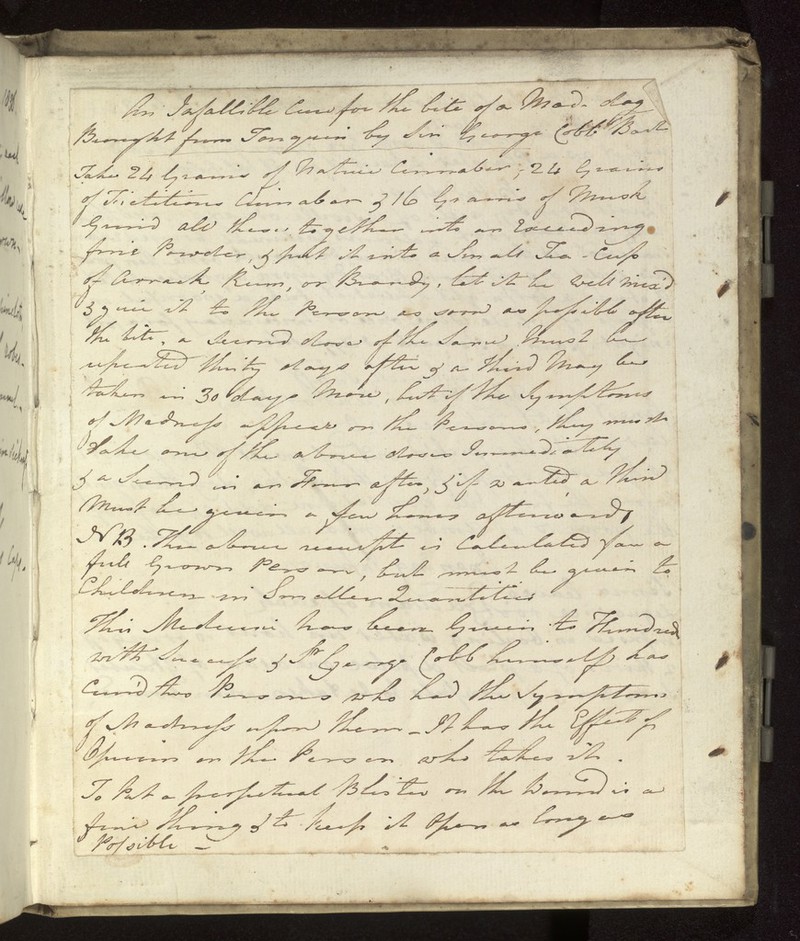 An Infallible Cure for the bite of a Mad-dog
Brought from Tonquin by Sir George Cobb Bart
Take 24 Grains of Native Cinnaber, 24 Grains
of Fictitious Cinnabar & 16 Grains of Musk
Grind all these together into an Exceeding
fine Powder, & put it into a Small Tea-Cup
of Arrack, Rum, or Brandy, let it be well mix'd
& give it to the Person as soon as possible after
the bite, a second dose of the Same, Must be
repeated thirty days after & a third May be
taken in 30 days More, but if the Symptoms
of Madness appear on the Persons, they must
take one of the above doses Immediately
& a Second in an Hour after, & if wanted, a third
Must be given a few hours afterwards
NB. The above receipt is Calculated for a
full Grown Person, but must be given to
Children in Smaller Quantities
This Medecine has been Given to Hundreds
with Success & Sr. George Cobb himself has
Cured two Persons who had the Symptoms
of Madness upon them - It has the Effect of
Opium on the Person who takes it.
To Put a perpetual Blister on the Wound is a
fine thing & to keep it Open as long as
Possible -